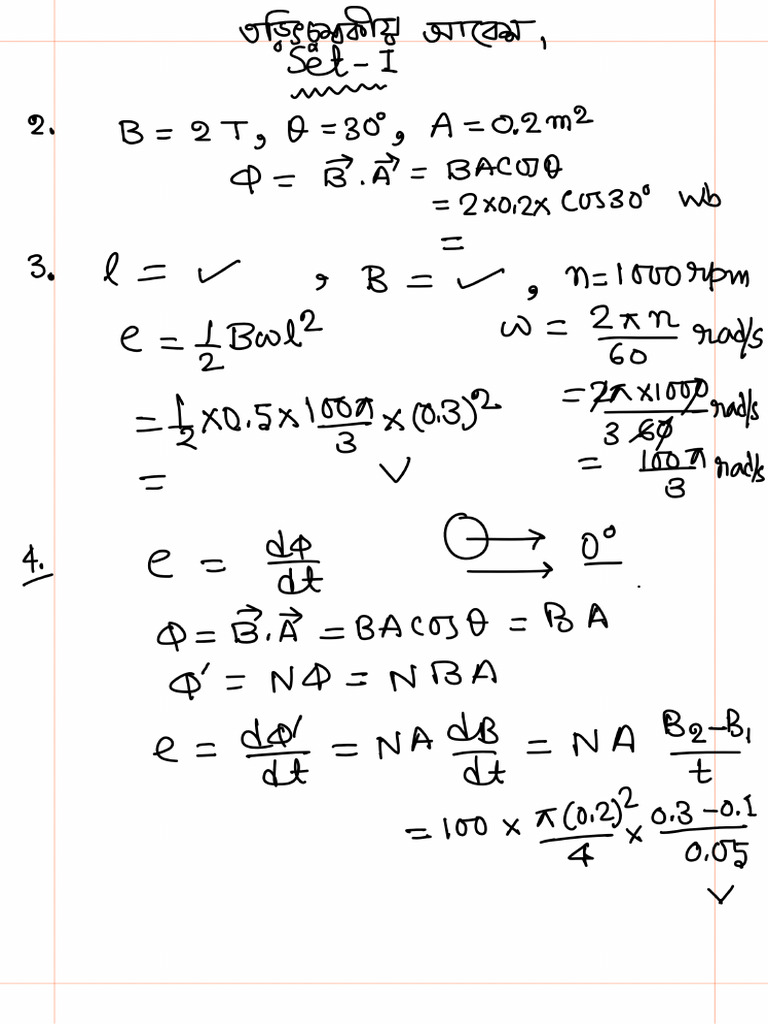 তড়িৎচুম্বকীয় আবেশ,
Set - I
2. B = 2 T, θ = 30°, A = 0.2 m²
Φ = B⃗ . A⃗ = BA cosθ
= 2 × 0.2 × cos 30° wb
=
3. l = ✓ , B = ✓ , n = 1000 rpm
e = 1/2 Bωl²
ω = 2πn/60 rad/s
= 1/2 × 0.5 × 100π/3 × (0.3)² V
= 2π × 1000/60 3 rad/s
=
= 100π/3 rad/s
4. e = dΦ/dt
0°
Φ = B⃗ . A⃗ = BA cosθ = BA
Φ' = NΦ = NBA
e = dΦ'/dt = NA dB/dt = NA B₂ - B₁/t
= 100 × π(0.2)²/4 × 0.3 - 0.1/0.05
V